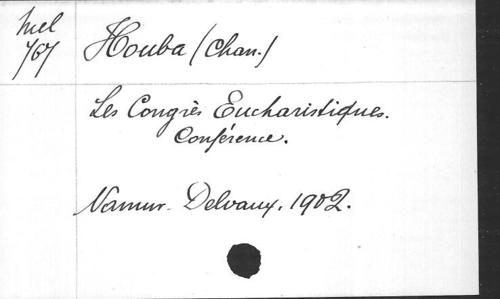 Mel
767
Houba (Chan.)
Les Congrès Eucharistiques.
Conférence.
Namur. Delvaux. 1902.